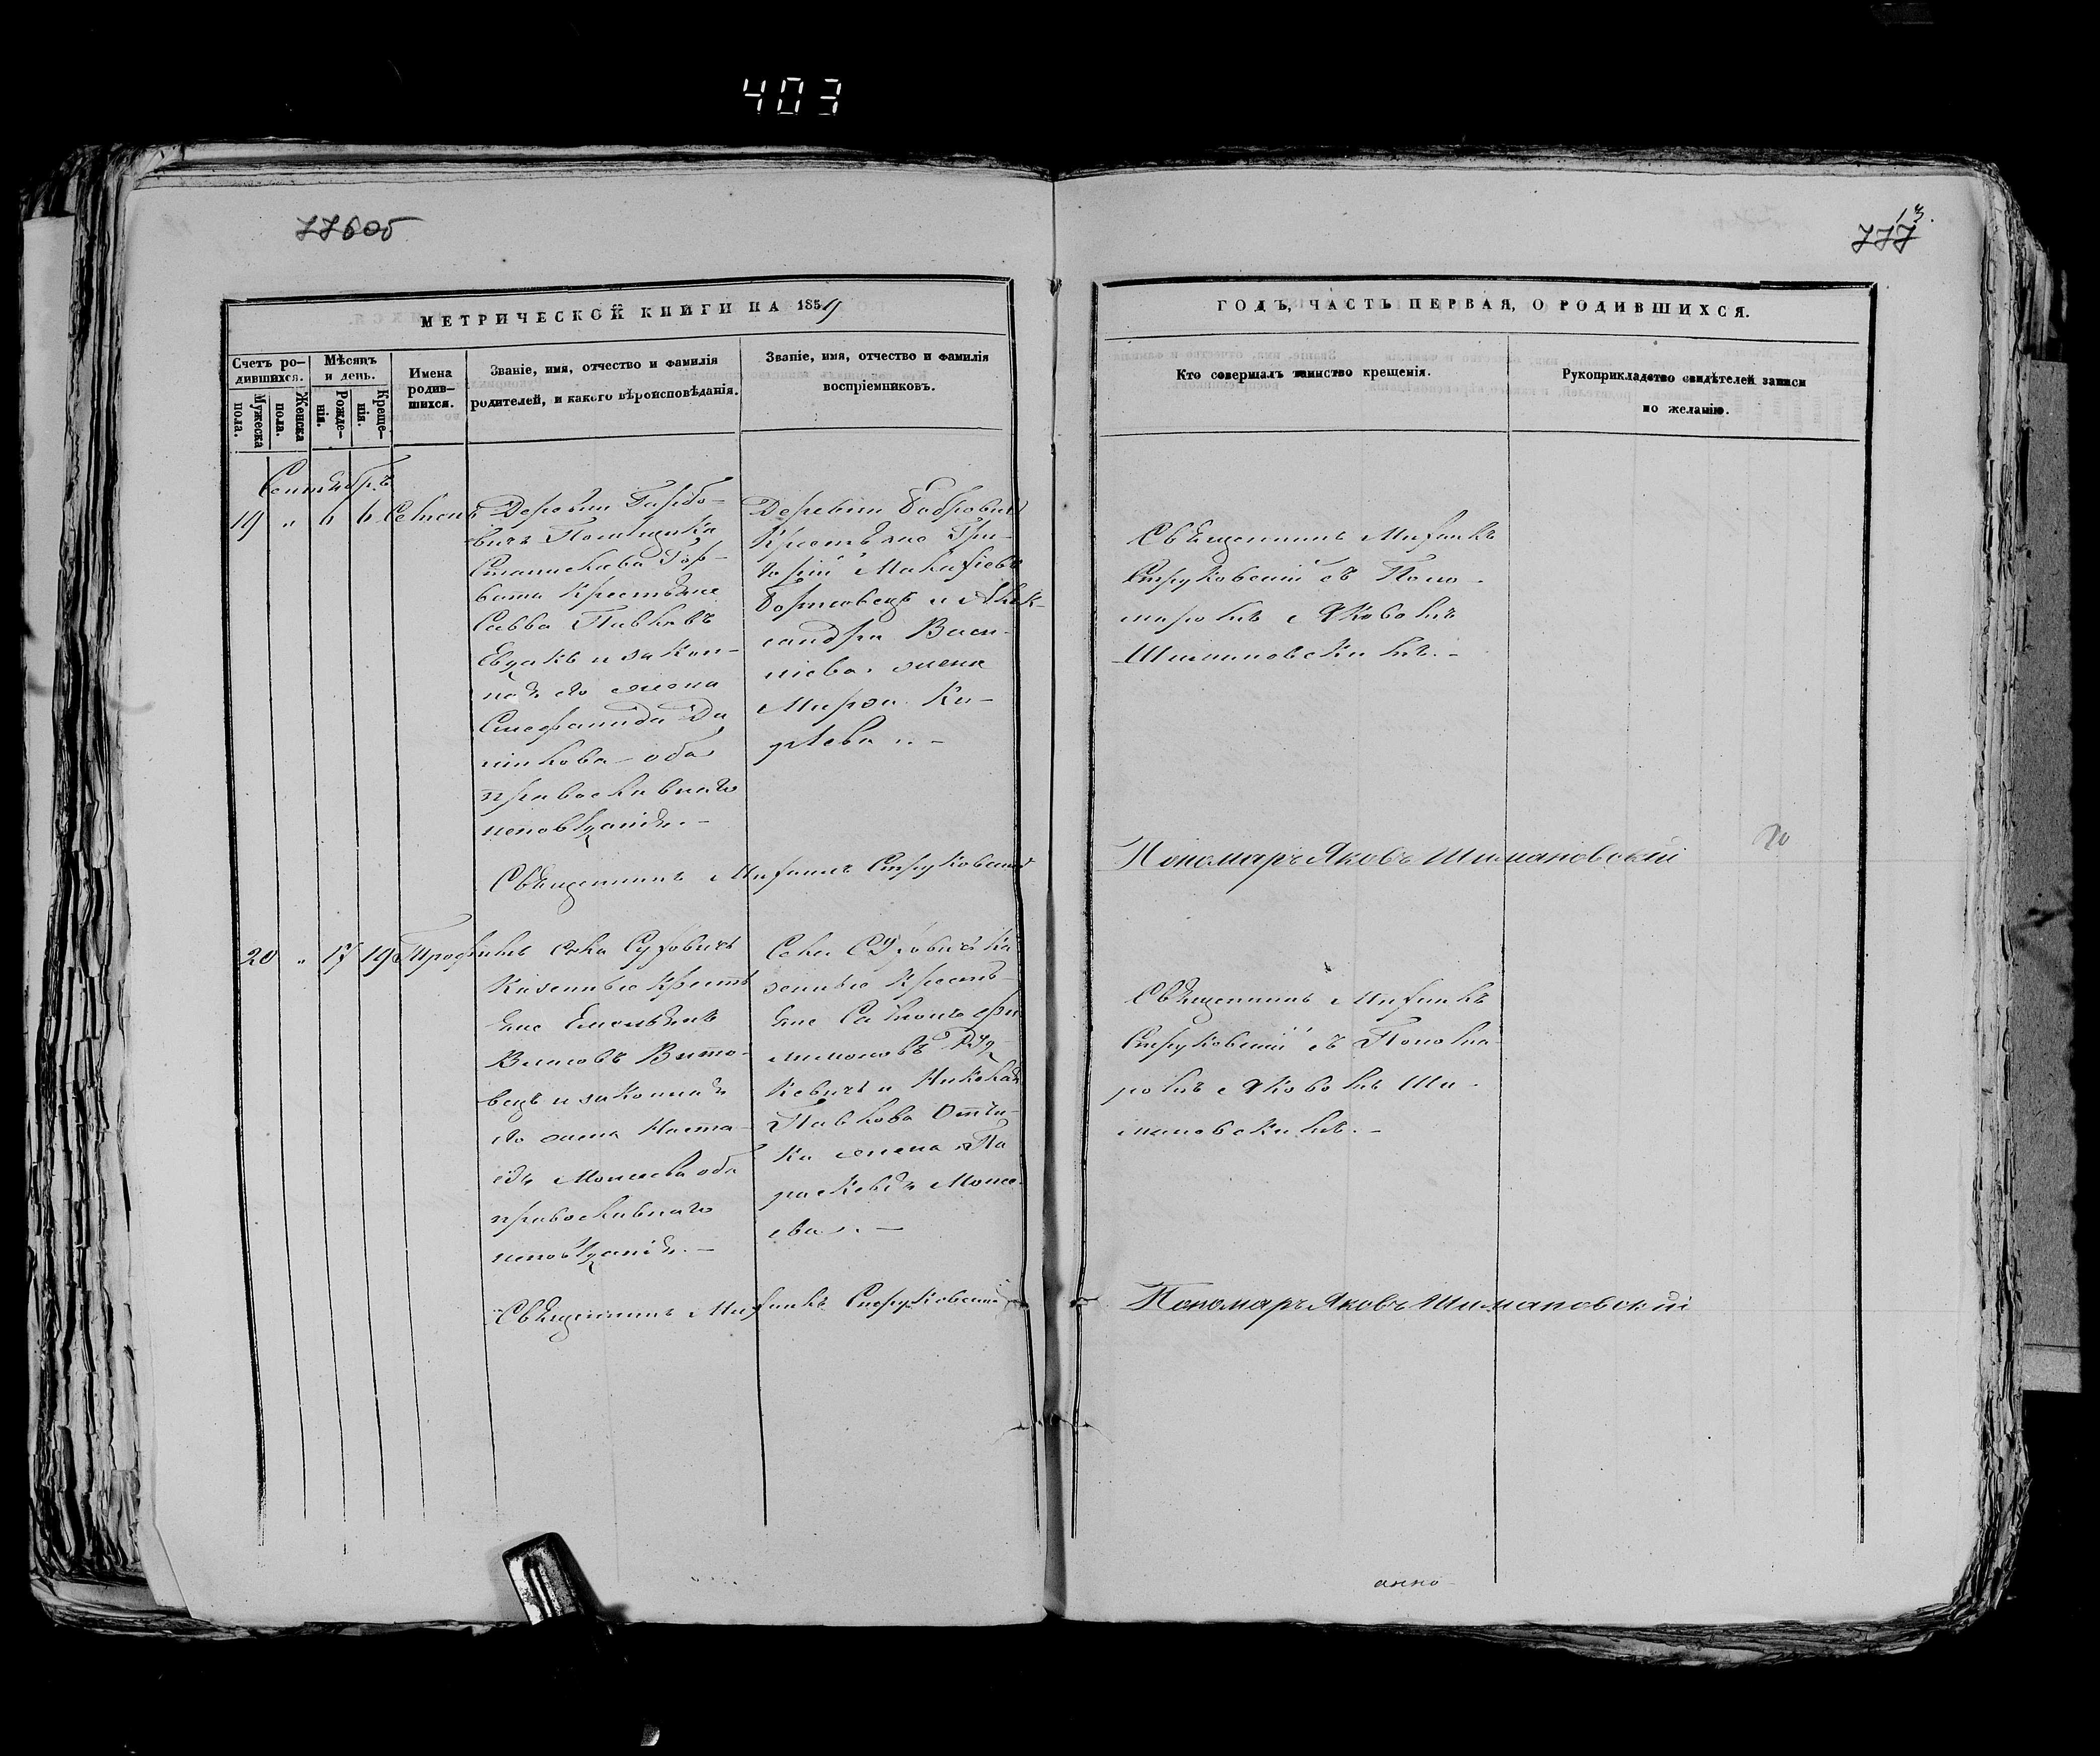 403
776об
13.
777
МЕТРИЧЕСКОЙ КНИГИ НА 1859
ГОДЪ, ЧАСТЬ ПЕРВАЯ, О РОДИВШИХСЯ.
Счетъ ро-
дившихся.
Мужеска
пола.
Женска
пола.
Мѣсяцъ
и день.
Рожде-
нія.
Креще-
нія.
Имена
родив-
шихся.
Званіе, имя, отчество и фамилія
родителей, и какого вѣроисповѣданія.
Званіе, имя, отчество и фамилія
воспріемниковъ.
Кто совершалъ таинство крещенія.
Рукоприкладство свидѣтелей записи
по желанію.
Сентябрь
19 " 6 6 Семенъ
Деревни Гарбо-
вичъ Помѣщика
Станислава Гор-
вата Крестьяне
Савва Павловъ
и закон-
ная его жена
Стефанида Да
ніилова оба
православнаго
исповѣданія. –
Деревни Бобровичъ
Крестьяне Гри-
горій Макаріевъ
и Алек-
сандра Васи-
ліева жена
Мирона Ки-
рѣева . –
Священникъ Михаилъ
Струковскій съ Поно-
маремъ Яковомъ
Шимановскимъ. –
Священникъ Михаилъ Струковскій
Пономарь Яковъ Шимановскій
20 " 17 19 Трофимъ
Села Суховичъ
Казенные Кресть
яне Емельянъ
Власовъ Вито-
вецъ и законная
его жена Наста-
сія Моисеева оба
православнаго
исповѣданія. –
Села Суховичъ Ка
зенные Кресть-
яне
и
Павлова
жена Па
раскевія Моисе
ева . –
Священникъ Михаилъ
Струковскій съ Понома-
ремъ Яковомъ Ши-
мановскимъ. –
Священникъ Михаилъ Струковскій
Пономарь Яковъ Шимановскій